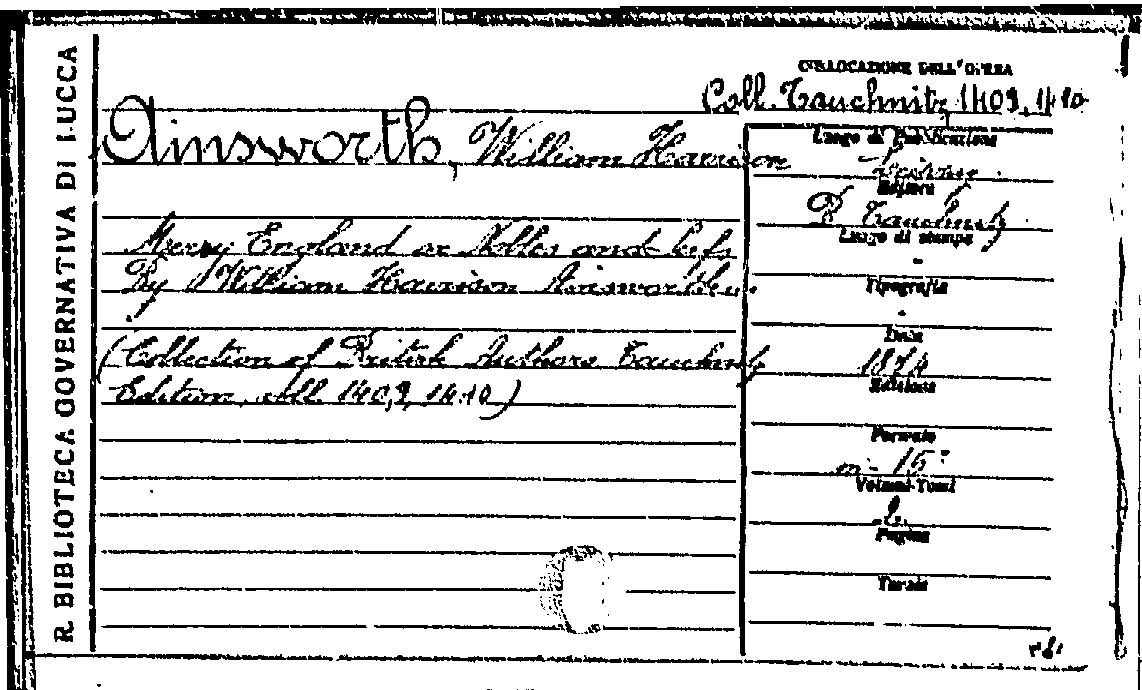 R. BIBLIOTECA GOVERNATIVA DI LUCCA
COLLOCAZIONE DELL'OPERA
Coll. Tauchnitz 1409, 1410
Ainsworth, William Harrison
Merry England or Nobles and Serfs
By William Harrison Ainsworth
(Collection of British Authors Tauchnitz
Edition, 1409, 1410)
Luogo di Pubblicazione
Editore
B. Tauchnitz
Luogo di stampa
"
Tipografia
"
Data
1874
Edizione
Formato
in-16°
Volumi-Tomi
2.
Pagine
Tavole